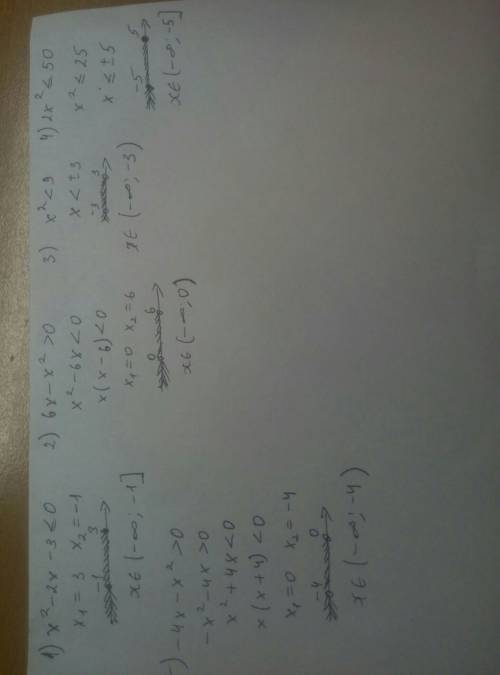 1) x² - 2x - 3 ≤ 0
x₁ = 3 x₂ = -1
-1 3
x ∈ (-∞; -1]
2) 6x - x² > 0
x² - 6x < 0
x(x - 6) < 0
x₁ = 0 x₂ = 6
0 6
x ∈ (-∞; 0)
3) x² < 9
x < ±3
-3 3
x ∈ (-∞; -3)
4) 2x² ≤ 50
x² ≤ 25
x ≤ ±5
-5 5
x ∈ (-∞; -5]
) -4x - x² > 0
-x² - 4x > 0
x² + 4x < 0
x(x + 4) < 0
x₁ = 0 x₂ = -4
-4 0
x ∈ (-∞; -4)